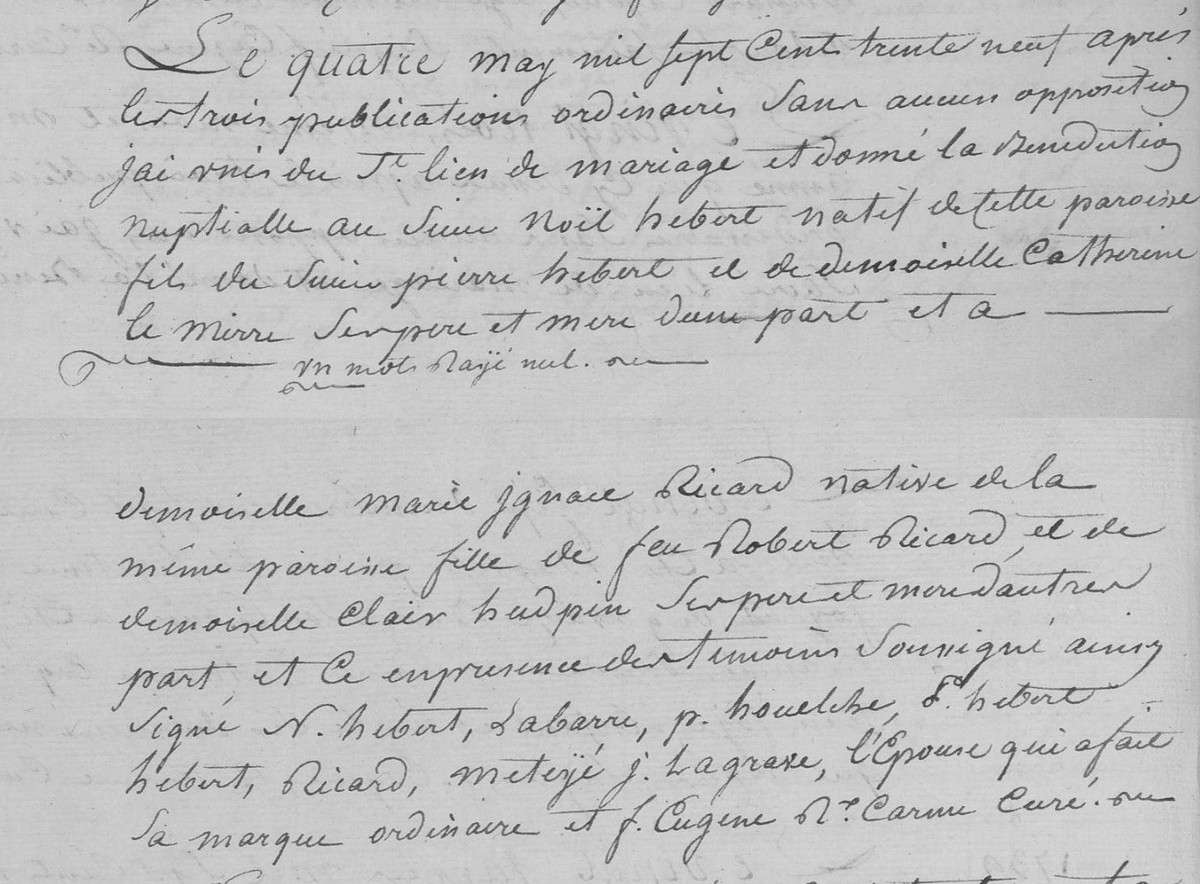 Le quatre may mil sept Cent trente neuf après
les trois publications ordinaires Sans aucun opposition
jai unis du St. lien de mariagé et donné la Benediction
nuptialle au Sieur Noël hebert natif de Cette paroisse
fils du Sieur pierre hebert et de demoiselle Catherine
le Mirre Ses pere et mere dune part et a
un mots Rayé nul.
demoiselle marie jgnace Ricard native de la
même paroisse fille de feu Robert Ricard et de
demoiselle Clair hudpin Ses pere et mere dautres
part, et Ce en presence des temoins Soussigné ainsy
Signé N. hebert, Labarre, p. houelche, hebert
hebert, Ricard, Meteyé j. Lagrave, l'Epouse qui a fait
Sa marque ordinaire et f. Eugene Rx. Carme Curé.